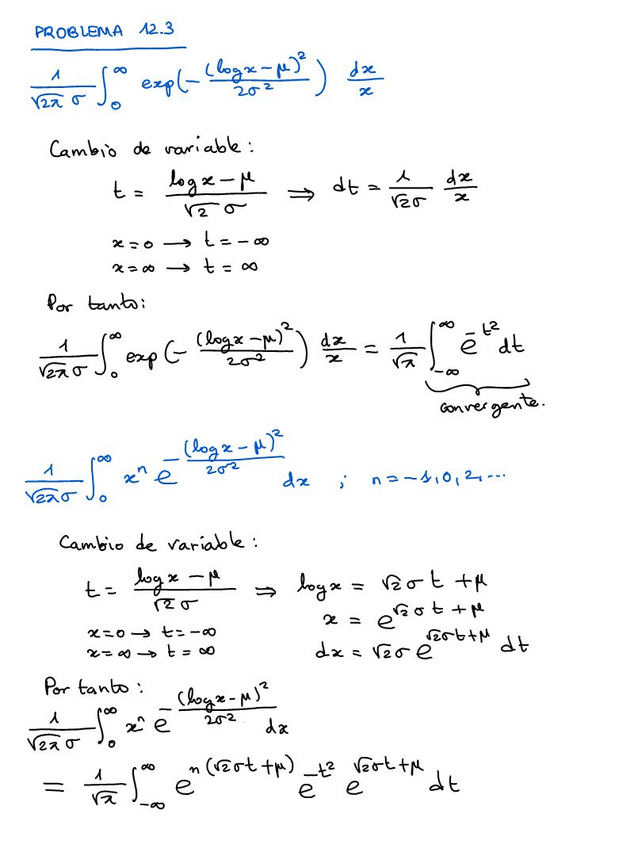 PROBLEMA 12.3
1/(√2π σ) ∫₀^∞ exp(-(log x - μ)²/2σ²) dx/x
Cambio de variable:
t = (log x - μ)/(√2 σ) ⟹ dt = 1/(√2σ) dx/x
x=0 → t=-∞
x=∞ → t=∞
Por tanto:
1/(√2π σ) ∫₀^∞ exp(-(log x - μ)²/2σ²) dx/x = 1/√π ∫_{-∞}^∞ e^{-t²} dt
convergente.
1/(√2π σ) ∫₀^∞ xⁿ e^{-(log x - μ)²/2σ²} dx ; n=-1,0,2,...
Cambio de variable:
t = (log x - μ)/(√2 σ) ⟹ log x = √2 σ t + μ
x = e^{√2 σ t + μ}
x=0 → t=-∞
x=∞ → t=∞
dx = √2σ e^{√2σt+μ} dt
Por tanto:
1/(√2π σ) ∫₀^∞ xⁿ e^{-(log x - μ)²/2σ²} dx
= 1/√π ∫_{-∞}^∞ e^{n(√2σt+μ)} e^{-t²} e^{√2σt+μ} dt